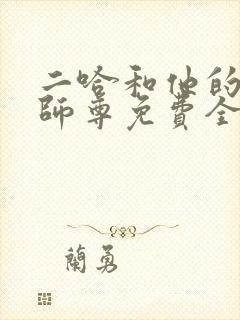 二哈和他的
師尊免費全
蘭勇